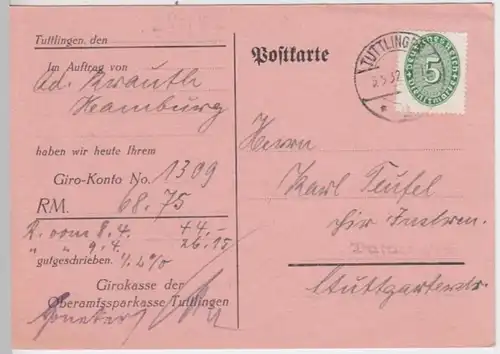 Tuttlingen, den
Im Auftrag von
Ad. Krauth
Hamburg
haben wir heute Ihrem
Giro-Konto No. 1309
RM. 68.75
R. vom 8.4. 44.-
" " 9.4. 26.15
gutgeschrieben. 1/. 2%
Girokasse der
Oberamtssparkasse Tuttlingen
Postkarte
TUTTLINGEN
5.32
DEUTSCHES REICH
5
DIENSTMARKE
Herrn
Karl Teufel
Instrum.
Stuttgarterstr.